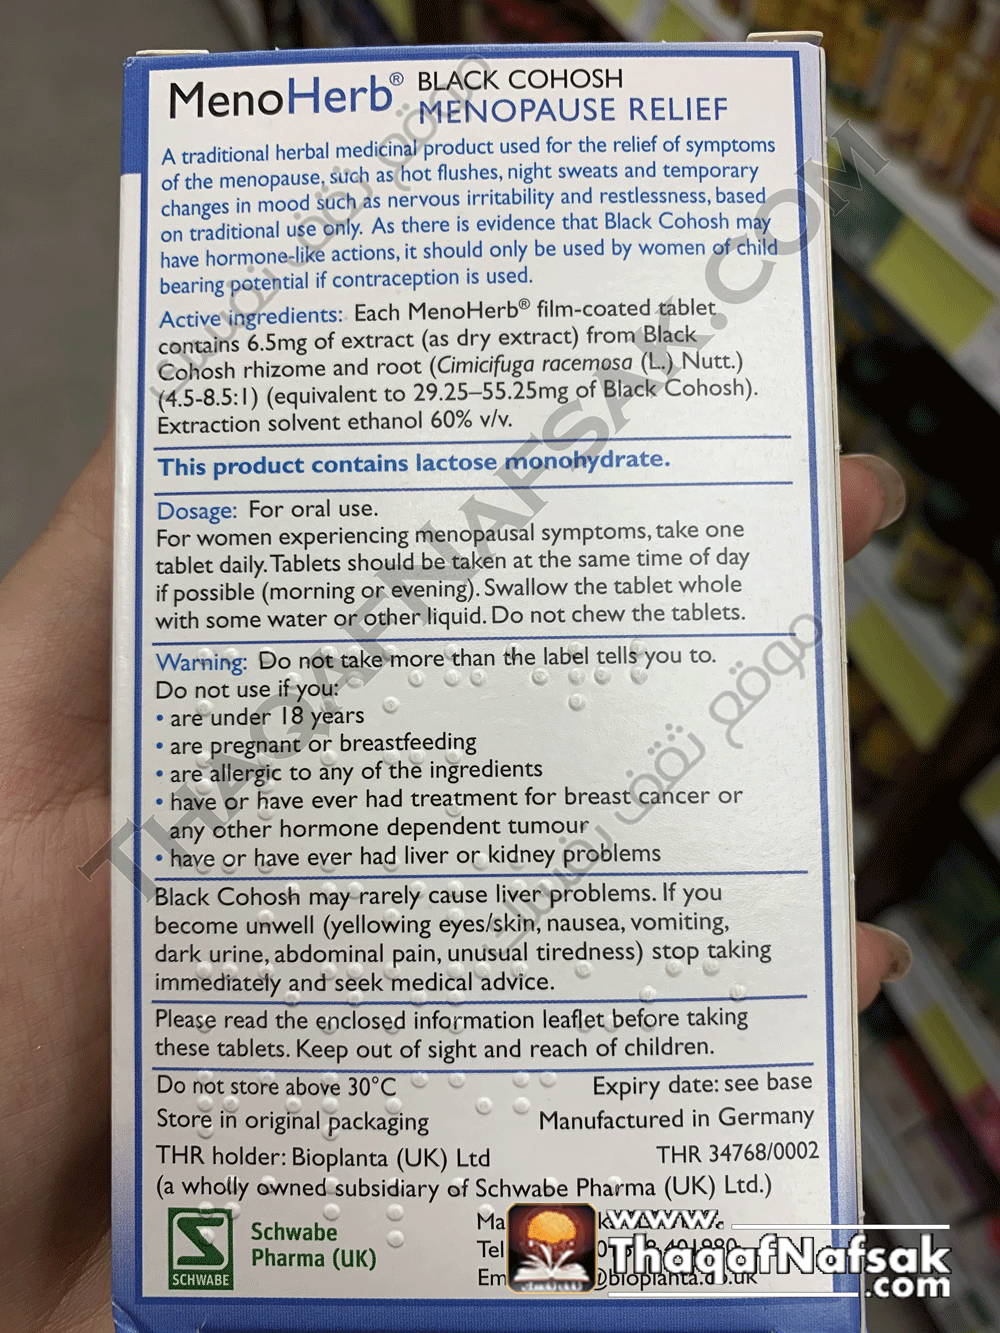 MenoHerb® BLACK COHOSH
MENOPAUSE RELIEF
A traditional herbal medicinal product used for the relief of symptoms
of the menopause, such as hot flushes, night sweats and temporary
changes in mood such as nervous irritability and restlessness, based
on traditional use only. As there is evidence that Black Cohosh may
have hormone-like actions, it should only be used by women of child
bearing potential if contraception is used.
Active ingredients: Each MenoHerb® film-coated tablet
contains 6.5mg of extract (as dry extract) from Black
Cohosh rhizome and root (Cimicifuga racemosa (L.) Nutt.)
(4.5-8.5:1) (equivalent to 29.25–55.25mg of Black Cohosh).
Extraction solvent ethanol 60% v/v.
This product contains lactose monohydrate.
Dosage: For oral use.
For women experiencing menopausal symptoms, take one
tablet daily. Tablets should be taken at the same time of day
if possible (morning or evening). Swallow the tablet whole
with some water or other liquid. Do not chew the tablets.
Warning: Do not take more than the label tells you to.
Do not use if you:
• are under 18 years
• are pregnant or breastfeeding
• are allergic to any of the ingredients
• have or have ever had treatment for breast cancer or
any other hormone dependent tumour
• have or have ever had liver or kidney problems
Black Cohosh may rarely cause liver problems. If you
become unwell (yellowing eyes/skin, nausea, vomiting,
dark urine, abdominal pain, unusual tiredness) stop taking
immediately and seek medical advice.
Please read the enclosed information leaflet before taking
these tablets. Keep out of sight and reach of children.
Do not store above 30°C
Expiry date: see base
Store in original packaging
Manufactured in Germany
THR holder: Bioplanta (UK) Ltd
THR 34768/0002
(a wholly owned subsidiary of Schwabe Pharma (UK) Ltd.)
SCHWABE
Schwabe
Pharma (UK)
Tel
www.
ThaqafNafsak
.com
THAQAFNAFSAK.COM
موقع ثقف نفسك
موقع ثقف نفسك